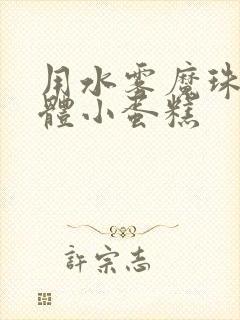 用水雾魔珠
體小蛋糕
許宗志